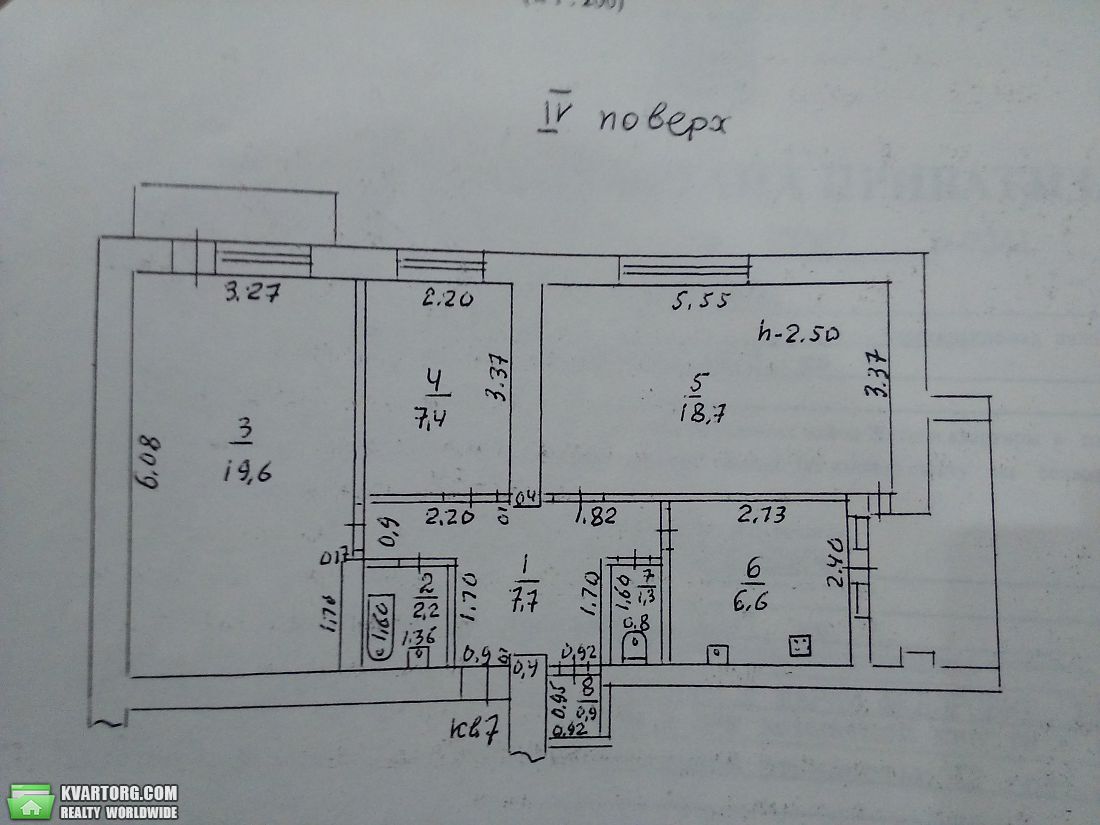 IV поверх
3.27
2.20
5,55
h-2.50
3.37
3.37
4
7,4
5
18,7
3
19,6
6.08
2.20
0,4
1.82
2.73
0,9
0,17
1
7,7
1.70
1.70
2
2,2
1.60
1.36
1.70
7
1,3
1,60
0.8
6
6,6
2.40
0.9
0,4
0.92
0.95
8
0,9
0.92
кв7
KVARTORG.COM
REALTY WORLDWIDE